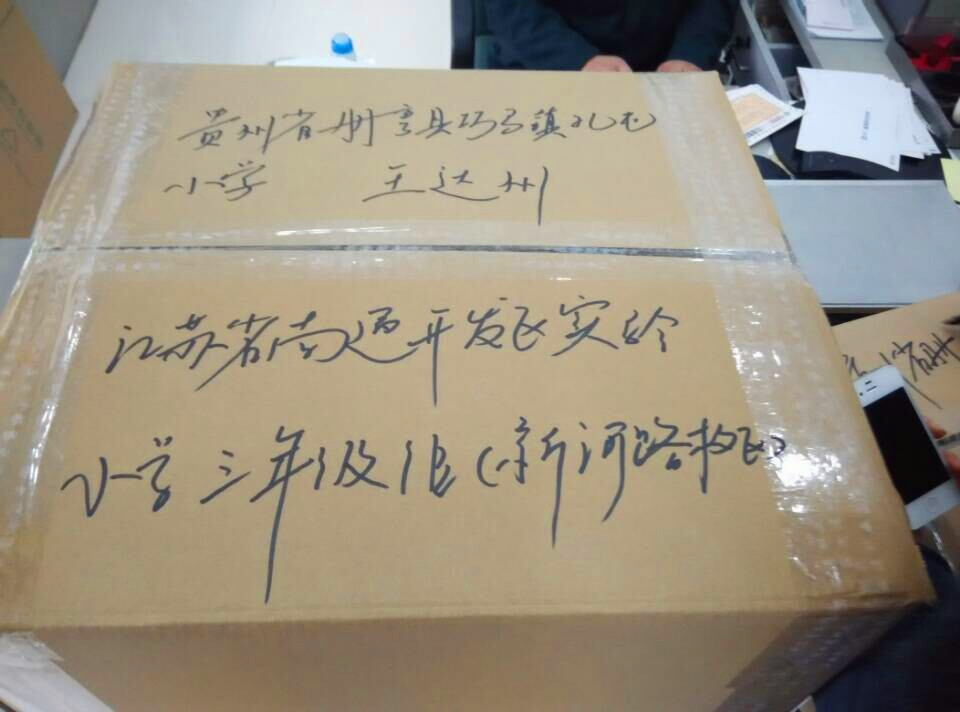 贵州省册亨县巧马镇孔屯
小学 王达州
江苏省南通开发区实验
小学三年级组(新河路校区)
省册